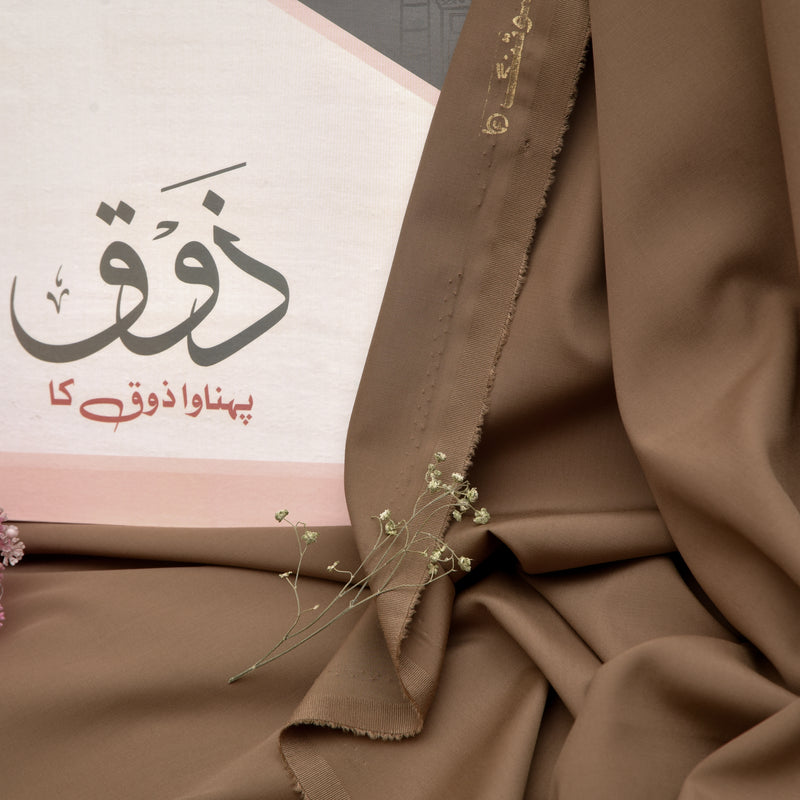 ذَوق
پہناوا ذوق کا